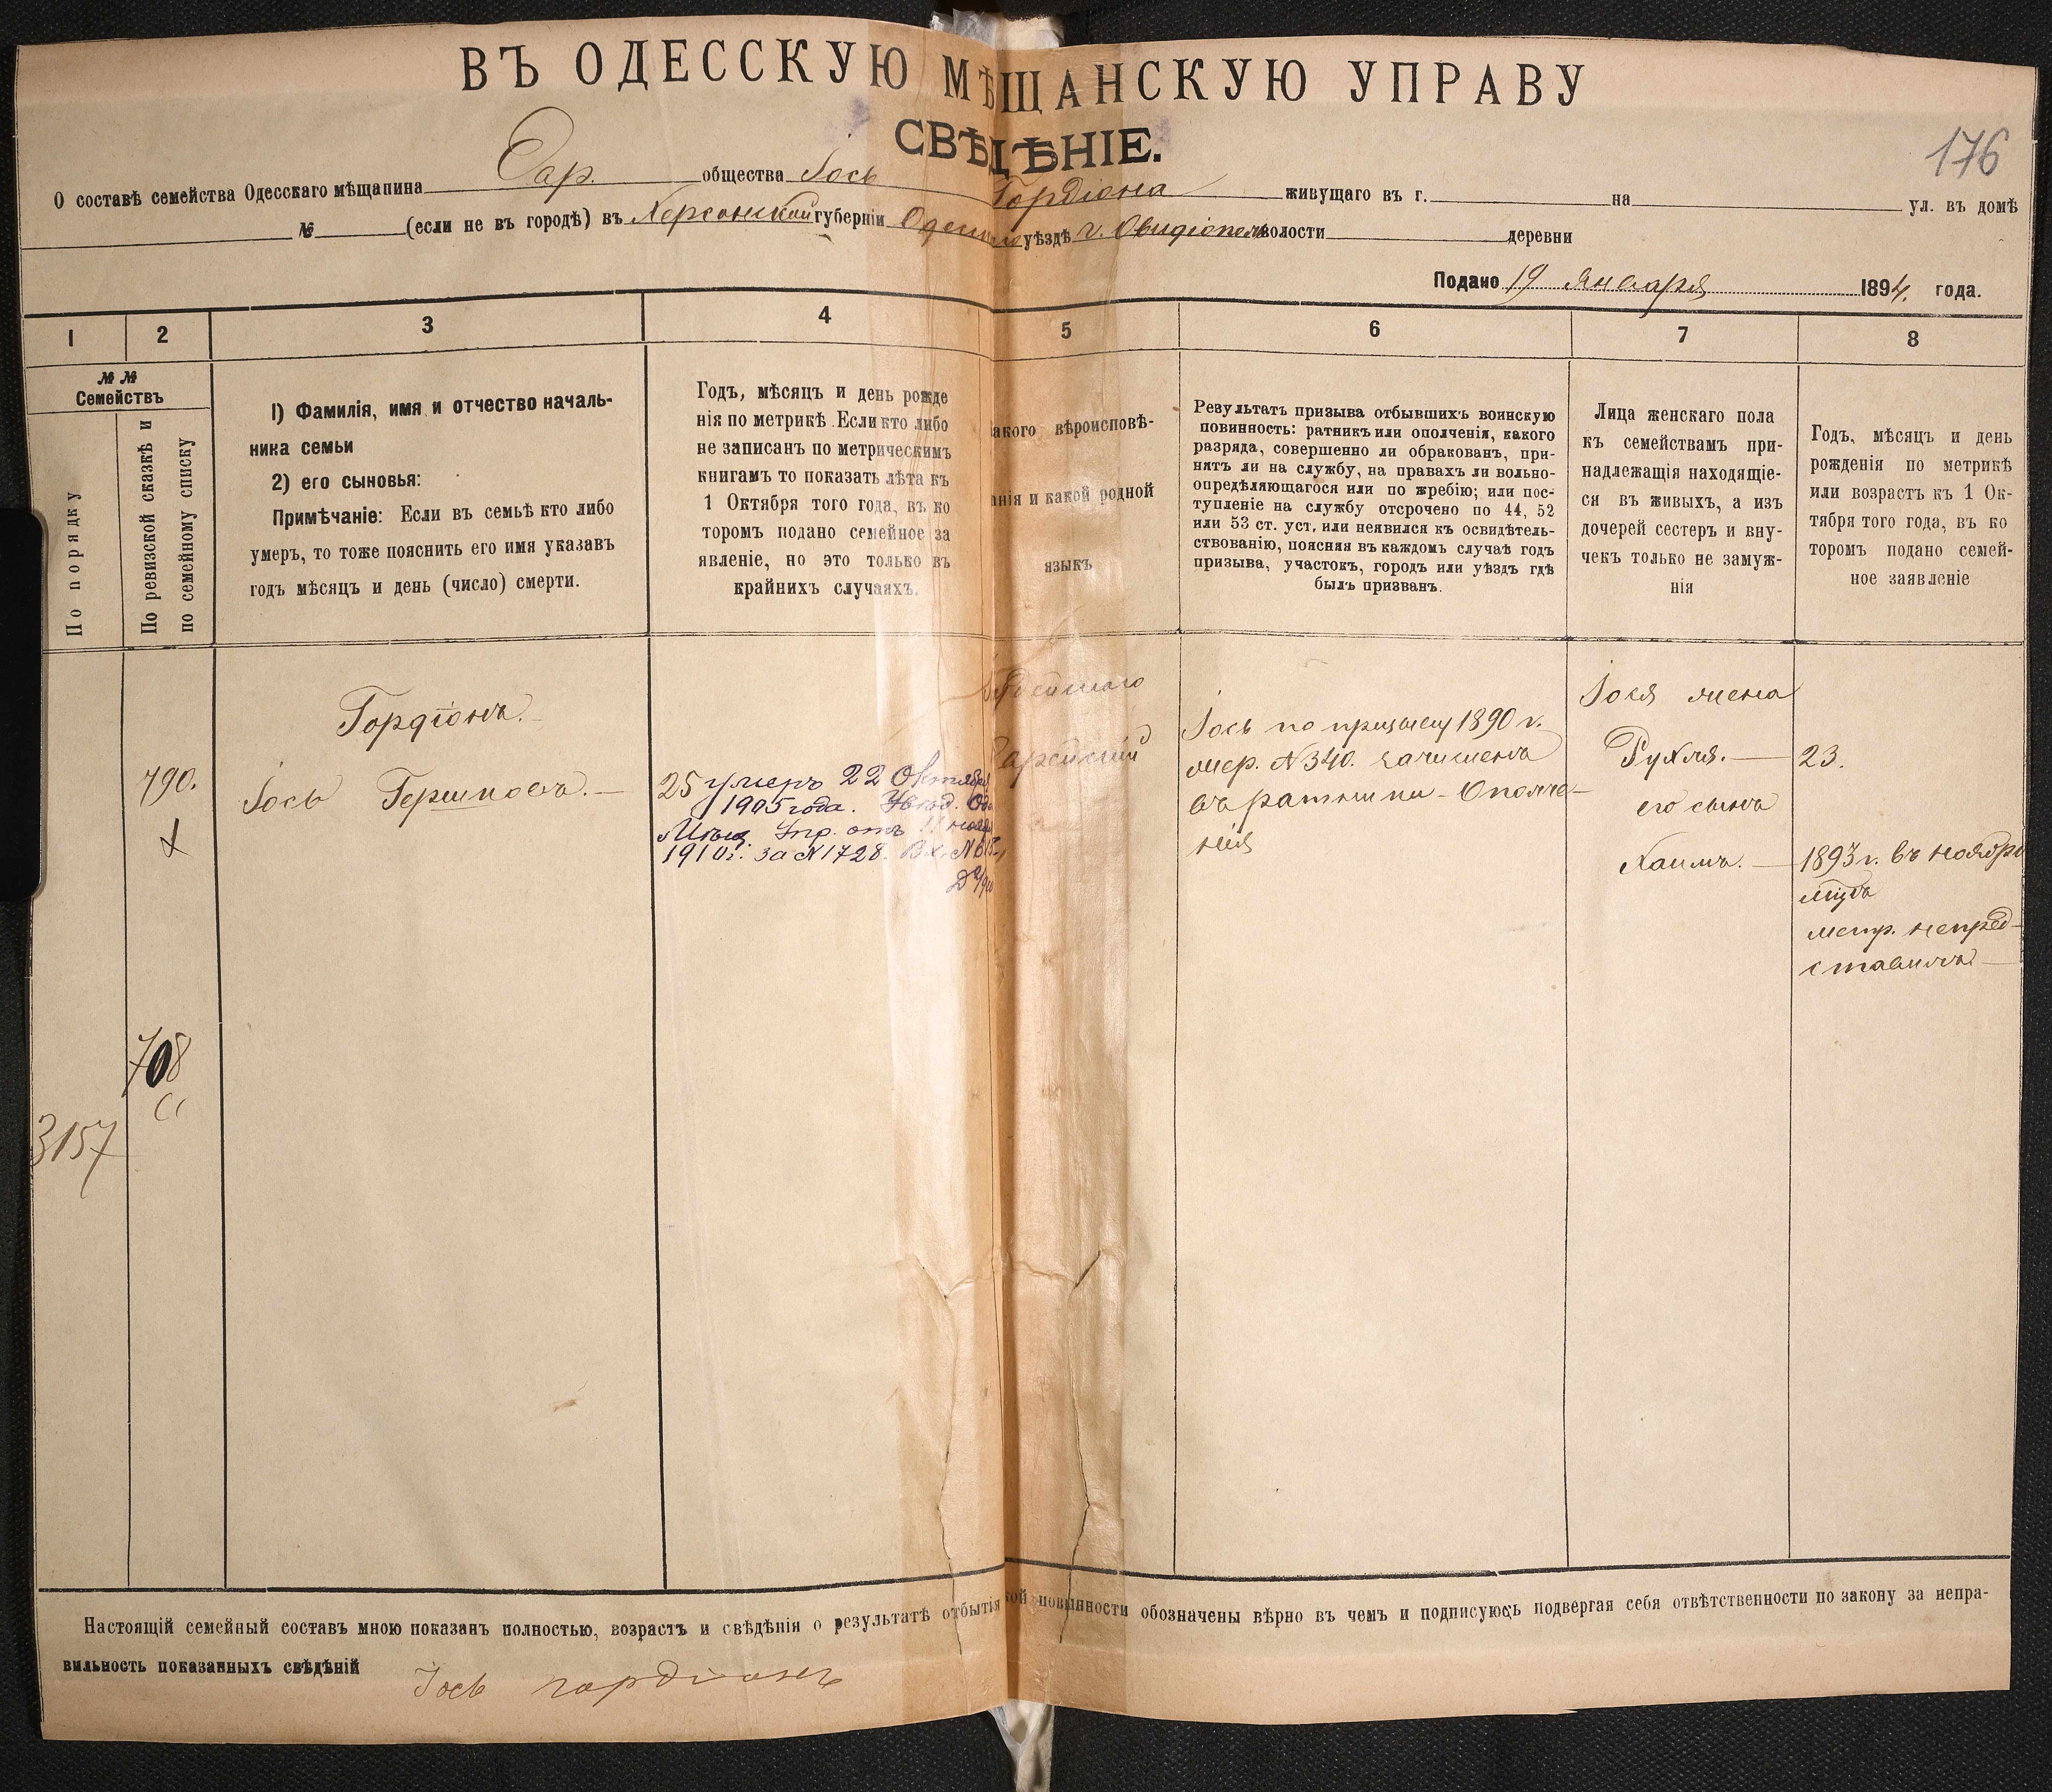 ВЪ ОДЕССКУЮ МѢЩАНСКУЮ УПРАВУ
СВѢДѢНІЕ.
176
О составѣ семейства Одесскаго мѣщанина Еар. общества Іось Гордіона живущаго въ г. на ул. въ домѣ
№ (если не въ городѣ) въ Херсонской губерніи Одесс уѣздѣ г. Овидіополь волости деревни
Подано 19 Января 1894. года.
1 2 3 4 5 6 7 8
№ №
Семействъ
По порядку
По ревизской сказкѣ и
по семейному списку
1) Фамилія, имя и отчество началь-
ника семьи
2) его сыновья:
Примѣчаніе: Если въ семьѣ кто либо
умеръ, то тоже пояснить его имя указавъ
годъ мѣсяцъ и день (число) смерти.
Годъ, мѣсяцъ и день рожде
нія по метрикѣ. Если кто либо
не записанъ по метрическимъ
книгамъ то показать лѣта къ
1 Октября того года, въ ко
торомъ подано семейное за
явленіе, но это только въ
крайнихъ случаяхъ.
акого вѣроисповѣ-
анія и какой родной
языкъ
Результатъ призыва отбывшихъ воинскую
повинность: ратникъ или ополченія, какого
разряда, совершенно ли обракованъ, при-
нятъ ли на службу, на правахъ ли вольно-
опредѣляющагося или по жребію; или пос-
тупленіе на службу отсрочено по 44, 52
или 53 ст. уст. или неявился къ освидѣтель-
ствованію, поясняя въ каждомъ случаѣ годъ
призыва, участокъ, городъ или уѣздъ гдѣ
былъ призванъ.
Лица женскаго пола
къ семействамъ при-
надлежащія находящіе-
ся въ живыхъ, а изъ
дочерей сестеръ и вну-
чекъ только не замуж-
нія
Годъ, мѣсяцъ и день
рожденія по метрикѣ
или возрастъ къ 1 Ок-
тября того года, въ ко
торомъ подано семей-
ное заявленіе
790.
708
3157
Гордіонъ.
Іось Гершковъ.
25 умеръ 22 Октября
1905 года. Увѣд. Од
Мѣщ. Упр. отъ 11 нояб
1910 г. за №1728. Вх. №
Іудейскаго
Еврейскій
Іось по призыву 1890 г.
жер. №340. зачисленъ
въ ратники - Ополче-
нія
Іося жена
Рухля. — 23.
его сынъ
Хаимъ. — 1893 г. въ ноябрѣ
м-цѣ
метр. непред-
ставилъ
Настоящій семейный составъ мною показанъ полностью, возрастъ и свѣдѣнія о результатѣ отбытія кой повинности обозначены вѣрно въ чемъ и подписуюсь подвергая себя отвѣтственности по закону за непра-
вильность показанныхъ свѣдѣній Іось гордіонъ